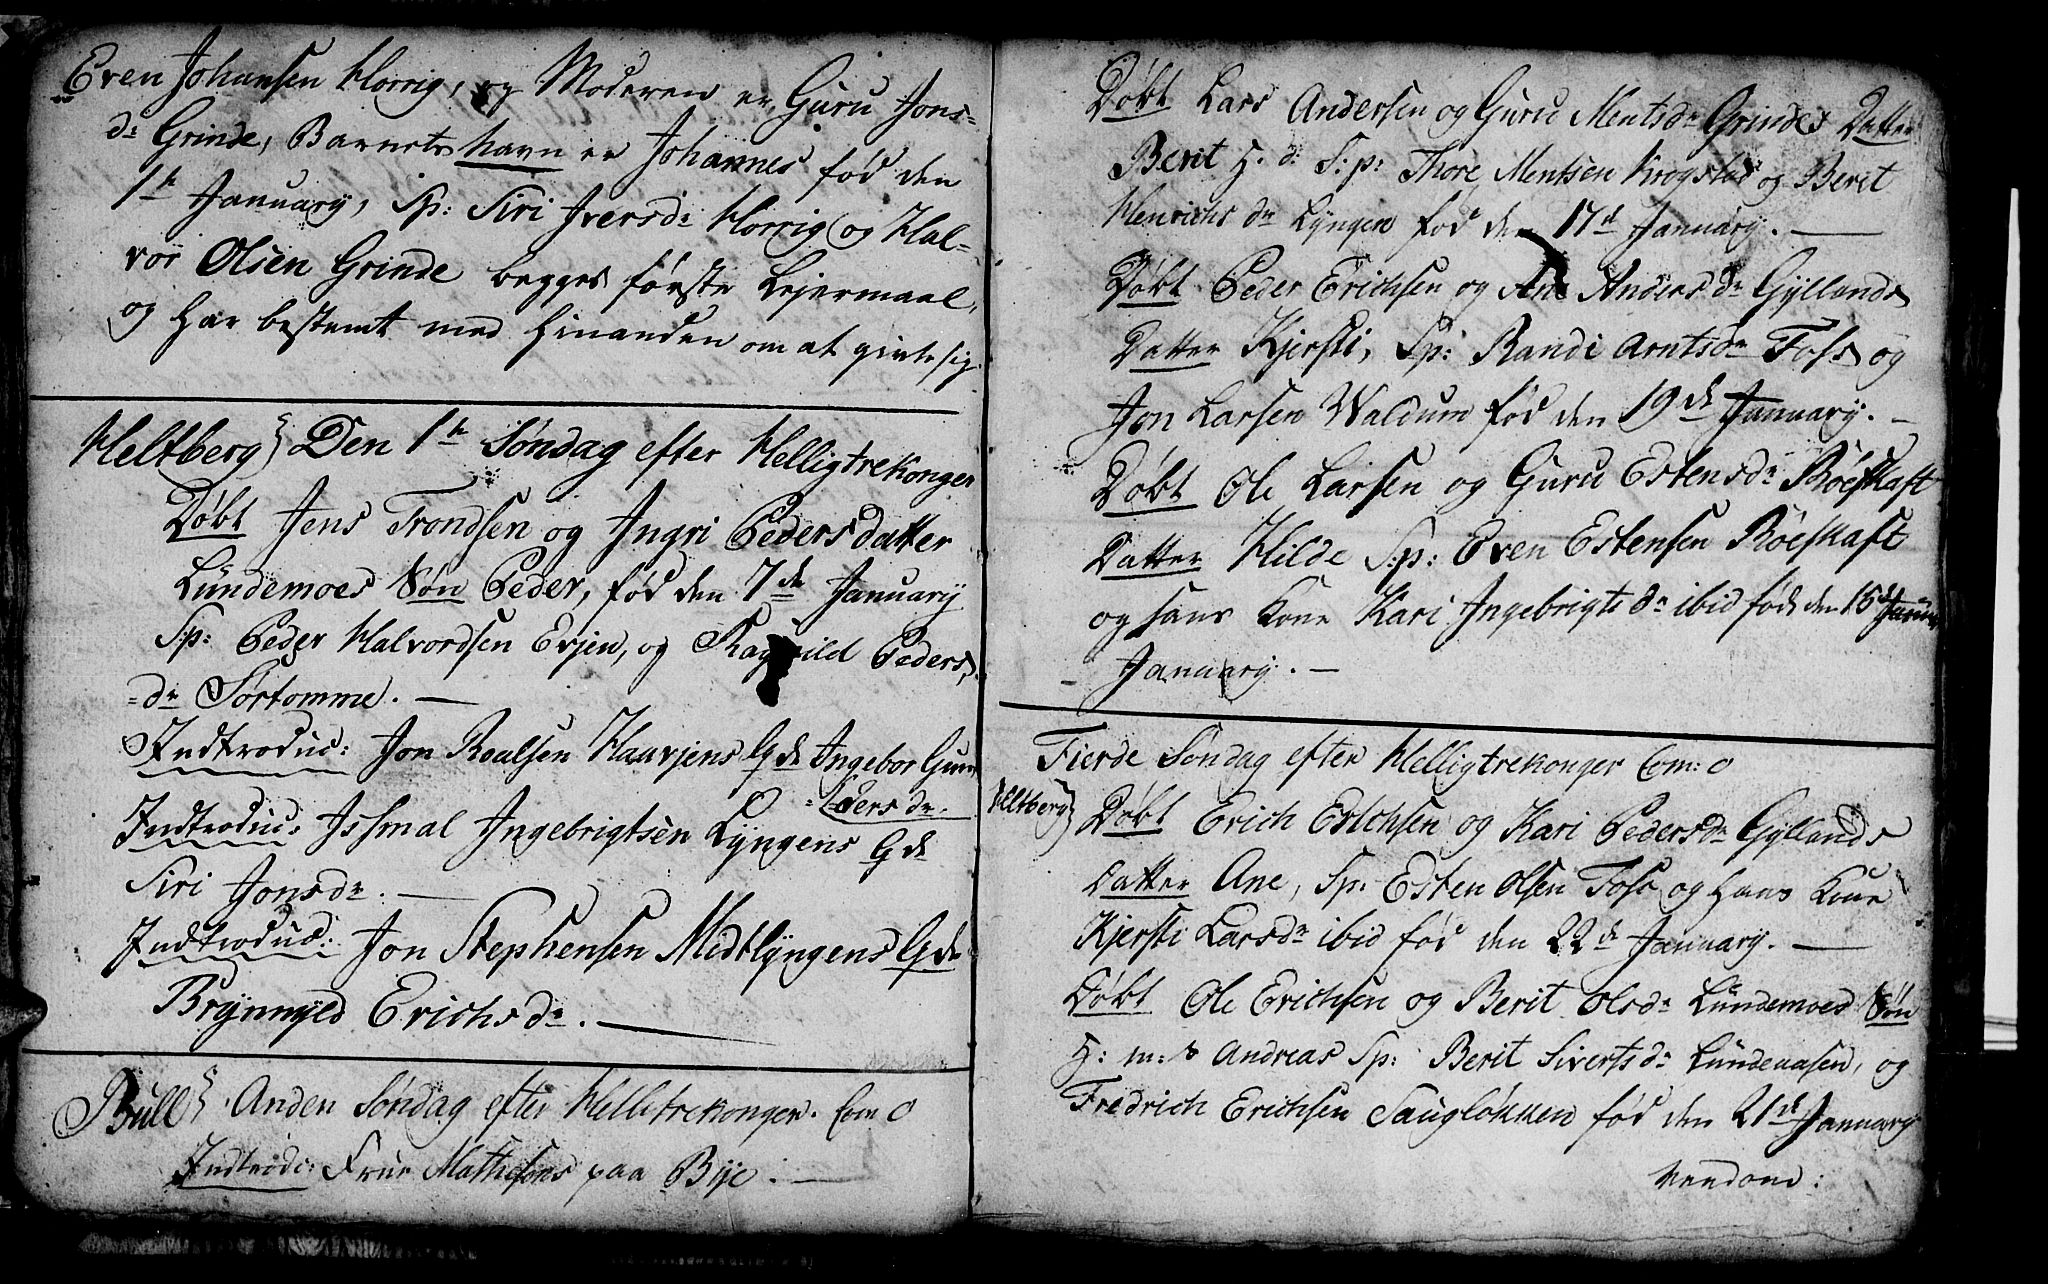 Even Johansen Horrig, og Moderen er, Guru Jons-
dr Grinde, Barnets Navn er Johannes fød den
1te January, Sp: Siri Iversdr Horrig og Hal-
vor Olsen Grinde begges første Lejermaal,
og har bestemt med hinanden om at givte sig
Heltberg Den 1te Søndag efter Helligtrekonger
Døbt Jens Trondsen og Ingri Pedersdatter
Lündemoes Søn Peder, fød den 7de January
S:p: Peder Halvordsen Evjen, og Ragnild Peders
=dr Sørtømme. —
Indtroduc: Jon Roalsen Haarjens Qde Ingebor Gun
=dersdr.
Indtroduc: Issmal Ingebrigtsen Lyngens Qde
Siri Jonsdr. —
Indtroduc: Jon Stephensen Midtlyngens Qde
Brynnyld Erichsdr. —
Büll Anden Søndag efter Hellitrekonger. Com: O
Indtrod: Frue Mathesons paa Bye. —
Døbt Lars Andersen og Guru Mentsdr Grindes Datter
Berit H. d: S:p: Thore Mentsen Krogstad og Berit
Henrichs dr Lyngen fød den 17d January. —
Døbt Peder Erichsen og Ane Anders dr Gyllands
Datter Kjersti, Sp: Randi Arntsdr Foss og
Jon Larsen Waldum fød den 19de January. —
Døbt Ole Larsen og Guru Estensdr Röeskaft
Datter Hilde S:p: Even Estensen Röeskaft
og hans Kone Kari Ingebrigts dr ibid fød den 15de
January. —
Fierde Søndag efter Helligtrekonger Com: O
Heltberg Døbt Erich Erichsen og Kari Pedersdr Gyllands
Datter Ane, Sp: Esten Olsen Foss og Hans Kone
Kjersti Larsdr ibid fød den 22de January. —
Døbt Ole Erichsen og Berit Olsdr Lündemoes Søn
H: m: d Andreas Sp: Berit Sivertsdr Lündeaasen, og
Fredrich Erichsen Saugløkken fød den 21de January